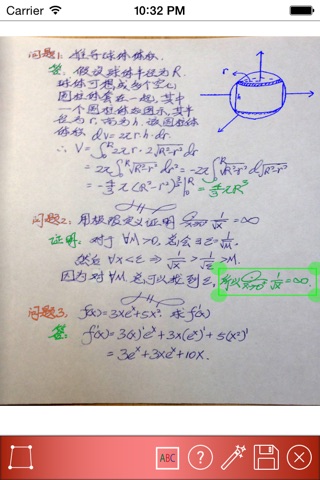 Carrier 10:32 PM
问题1: 推导球体体积.
答: 假设球体半径为R.
球体可想成多个空心
圆柱体套在一起, 其中
一个圆柱体如图示, 其半
径为r, 高为h, 故圆柱体
体积 dV=2πr·h·dr.
∴ V=∫₀ᴿ 2πr·2√(R²-r²) dr
=2π∫₀ᴿ √(R²-r²) dr² = -2π∫₀ᴿ √(R²-r²) d(R²-r²)
= -4/3 π (R²-r²)^(3/2) |₀ᴿ = 4/3 πR³
r
h
问题2: 用极限定义证明 lim x→0⁺ 1/√x = ∞
证明: 对于 ∀M>0, 总会∃ε=1/√M.
然后 ∀x<ε ⇒ 1/√x > 1/√ε > M.
因为对∀M, 总可以找到ε, 所以 lim x→0⁺ 1/√x = ∞.
问题3, f(x)=3xeˣ+5x², 求f'(x)
答: f'(x)=3(x)'eˣ+3x(eˣ)'+5(x²)'
=3eˣ+3xeˣ+10x.
ABC
?